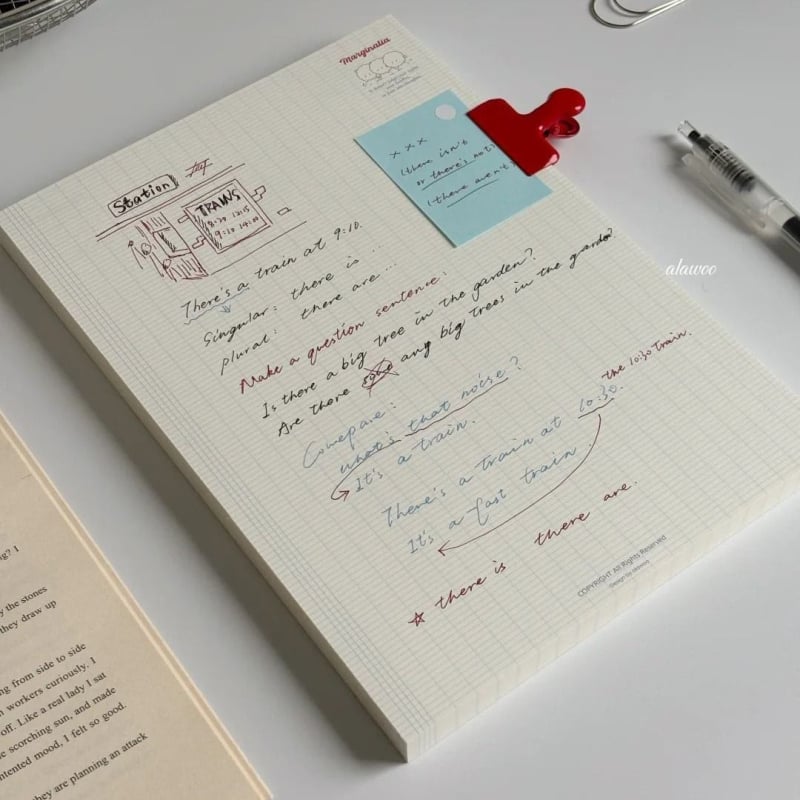 Marginalia
× × ×
(there isn't
or there's not)
(there aren't)
Station
TRAINS
8:30 12:15
9:10 14:20
There's a train at 9:10.
Singular: there is ...
Plural: there are ...
Make a question sentence:
Is there a big tree in the garden?
Are there some any big trees in the garden?
Comepare:
what's that noise?
It's a train.
the 10:30 train.
There's a train at 10:30.
It's a fast train
☆ there is there are.
COPYRIGHT All Rights Reserved
Design by alawoo
alawoo
ng? I
y the stones
they draw up
ng from side to side
n workers curiously. I
off. Like a real lady I sat
e scorching sun, and made
ntented mood, I felt so good.
ey are planning an attack